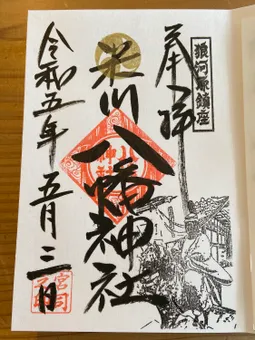 狼河原鎮座
奉拝
米川八幡神社
令和五年五月三日
宮司之印